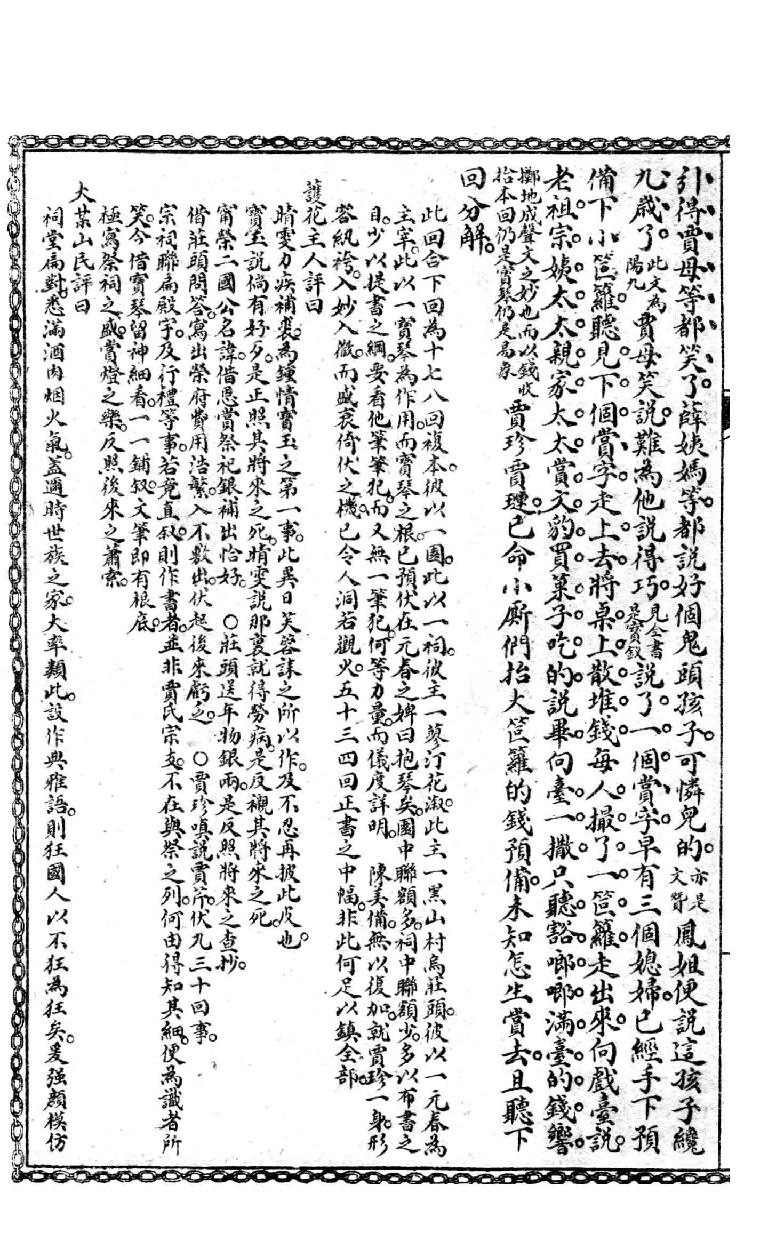 引得賈母等都笑了薛姨媽等都說好個鬼頭孩子可憐兒的亦是文贊鳳姐便說這孩子纔
九歲了此文為陽九賈母笑說難為他說得巧見全書是寶釵說了一個賞字早有三個媳婦已經手下預
備下小笸籮聽見下個賞字走上去將桌上散堆錢每人撮了一笸籮走出來向戲臺說
老祖宗姨太太親家太太賞文豹買菓子吃的說畢向臺一撒只聽豁啷啷滿臺的錢響
擲地成聲文之妙也而以錢收拾本回仍是寶琴仍是易象賈珍賈璉已命小廝們抬大笸籮的錢預備未知怎生賞去且聽下
回分解
此回合下回為十七八回複本彼以一園此以一祠彼主一蓼汀花漵此主一黑山村烏莊頭彼以一元春為
主宰此以一寶琴為作用而寶琴之根已預伏在元春之婢曰抱琴矣園中聯額多祠中聯額少多以布書之
目少以提書之綱要看他筆筆犯而又無一筆犯何等力量而儀度詳明　陳美備無以復加就賈珍一身形
容紈袴入妙入微而盛衰倚伏之機已令人洞若觀火五十三四回正書之中幅非此何足以鎮全部
護花主人評曰
晴雯力疾補裘為鍾情寶玉之第一事此異日芙蓉誄之所以作及不忍再披此裘也
寶玉說倘有好歹是正照其將來之死晴雯說那裏就得勞病是反襯其將來之死
甯榮二國公名諱借恩賞祭祀銀補出恰好　〇莊頭送年物銀兩是反照將來之查抄
借莊頭問答寫出榮府費用浩繁入不敷出伏起後來虧乏　〇賈珍嗔說賈芹伏九三十回事
宗祠聯扁殿宇及行禮等事若竟直敘則作書者並非賈氏宗支不在與祭之列何由得知其細便為識者所
笑今借寶琴留神細看一一鋪敘文筆即有根底
極寫祭祠之盛賞燈之樂反照後來之蕭索
大某山民評曰
祠堂扁對悉滿酒肉烟火氣蓋邇時世族之家大率類此設作典雅語則狂國人以不狂為狂矣爰强顏模仿